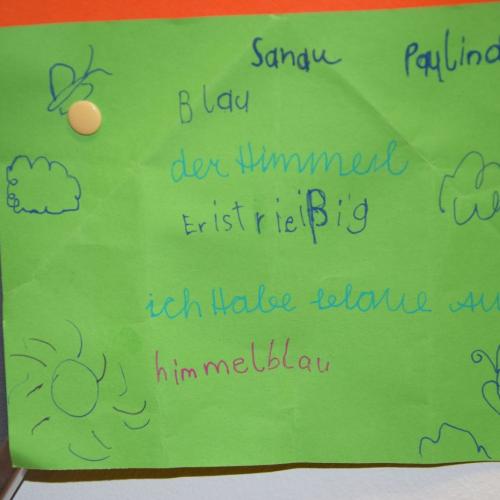 Sandu Paulina
Blau
der Himmel
Er ist rieißig
ich Habe blaue Au
himmelblau